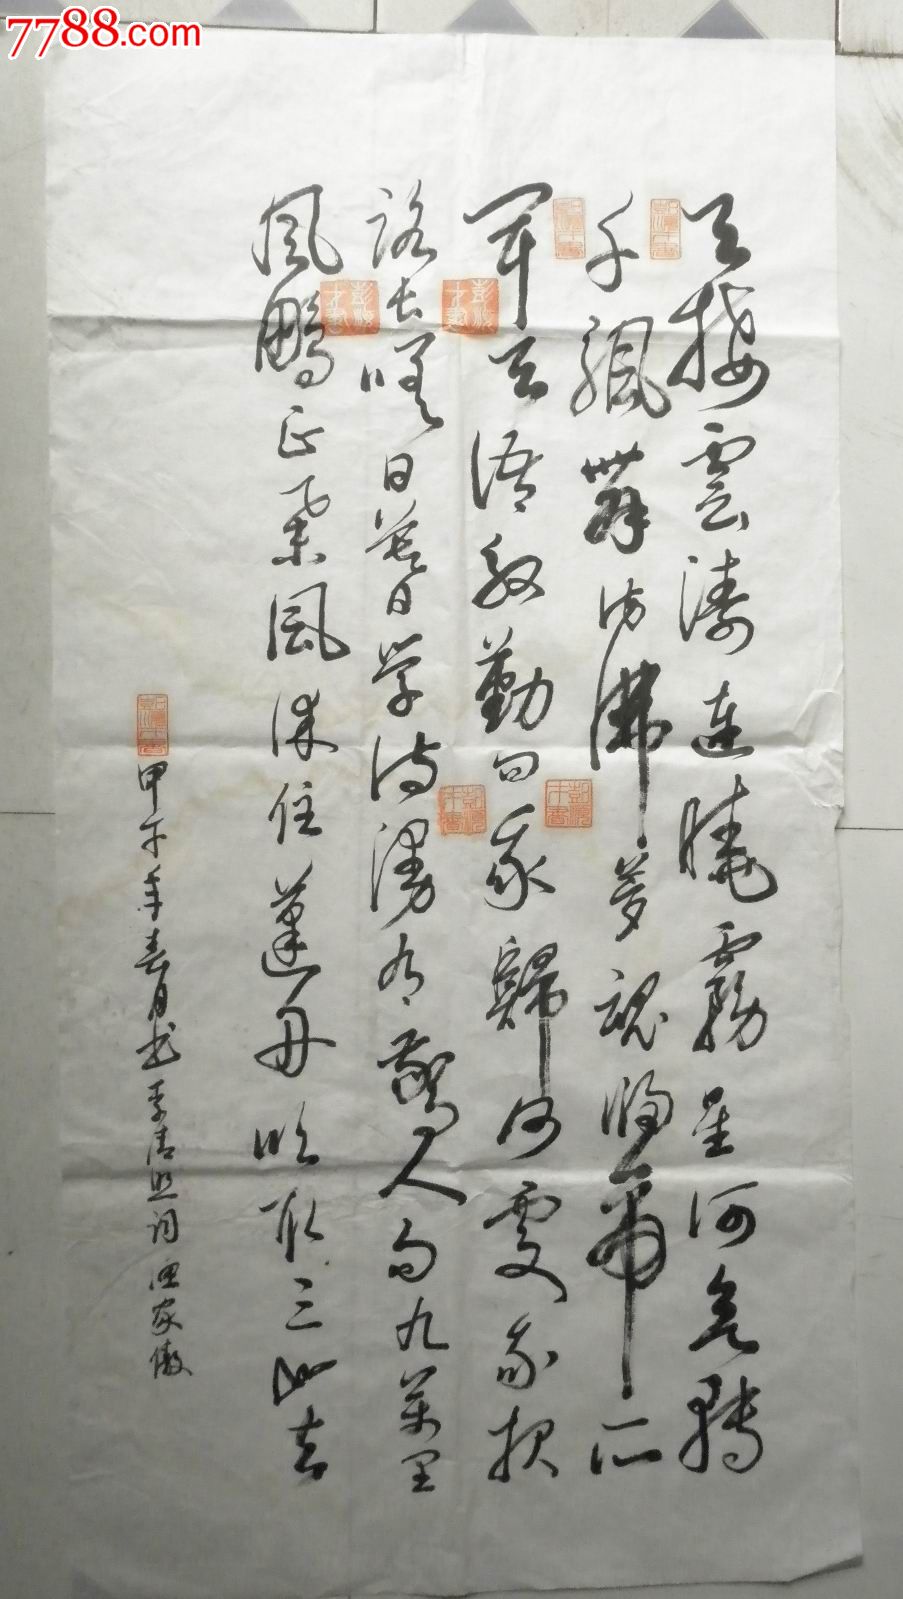 7788.com
天接雲濤連曉霧星河欲轉
千颿舞彷彿夢魂歸帝所
聞天語殷勤問我歸何處我報
路長嗟日暮學詩謾有驚人句九萬里
風鵬正舉風休住蓬舟吹取三山去
甲午年春月书李清照词渔家傲